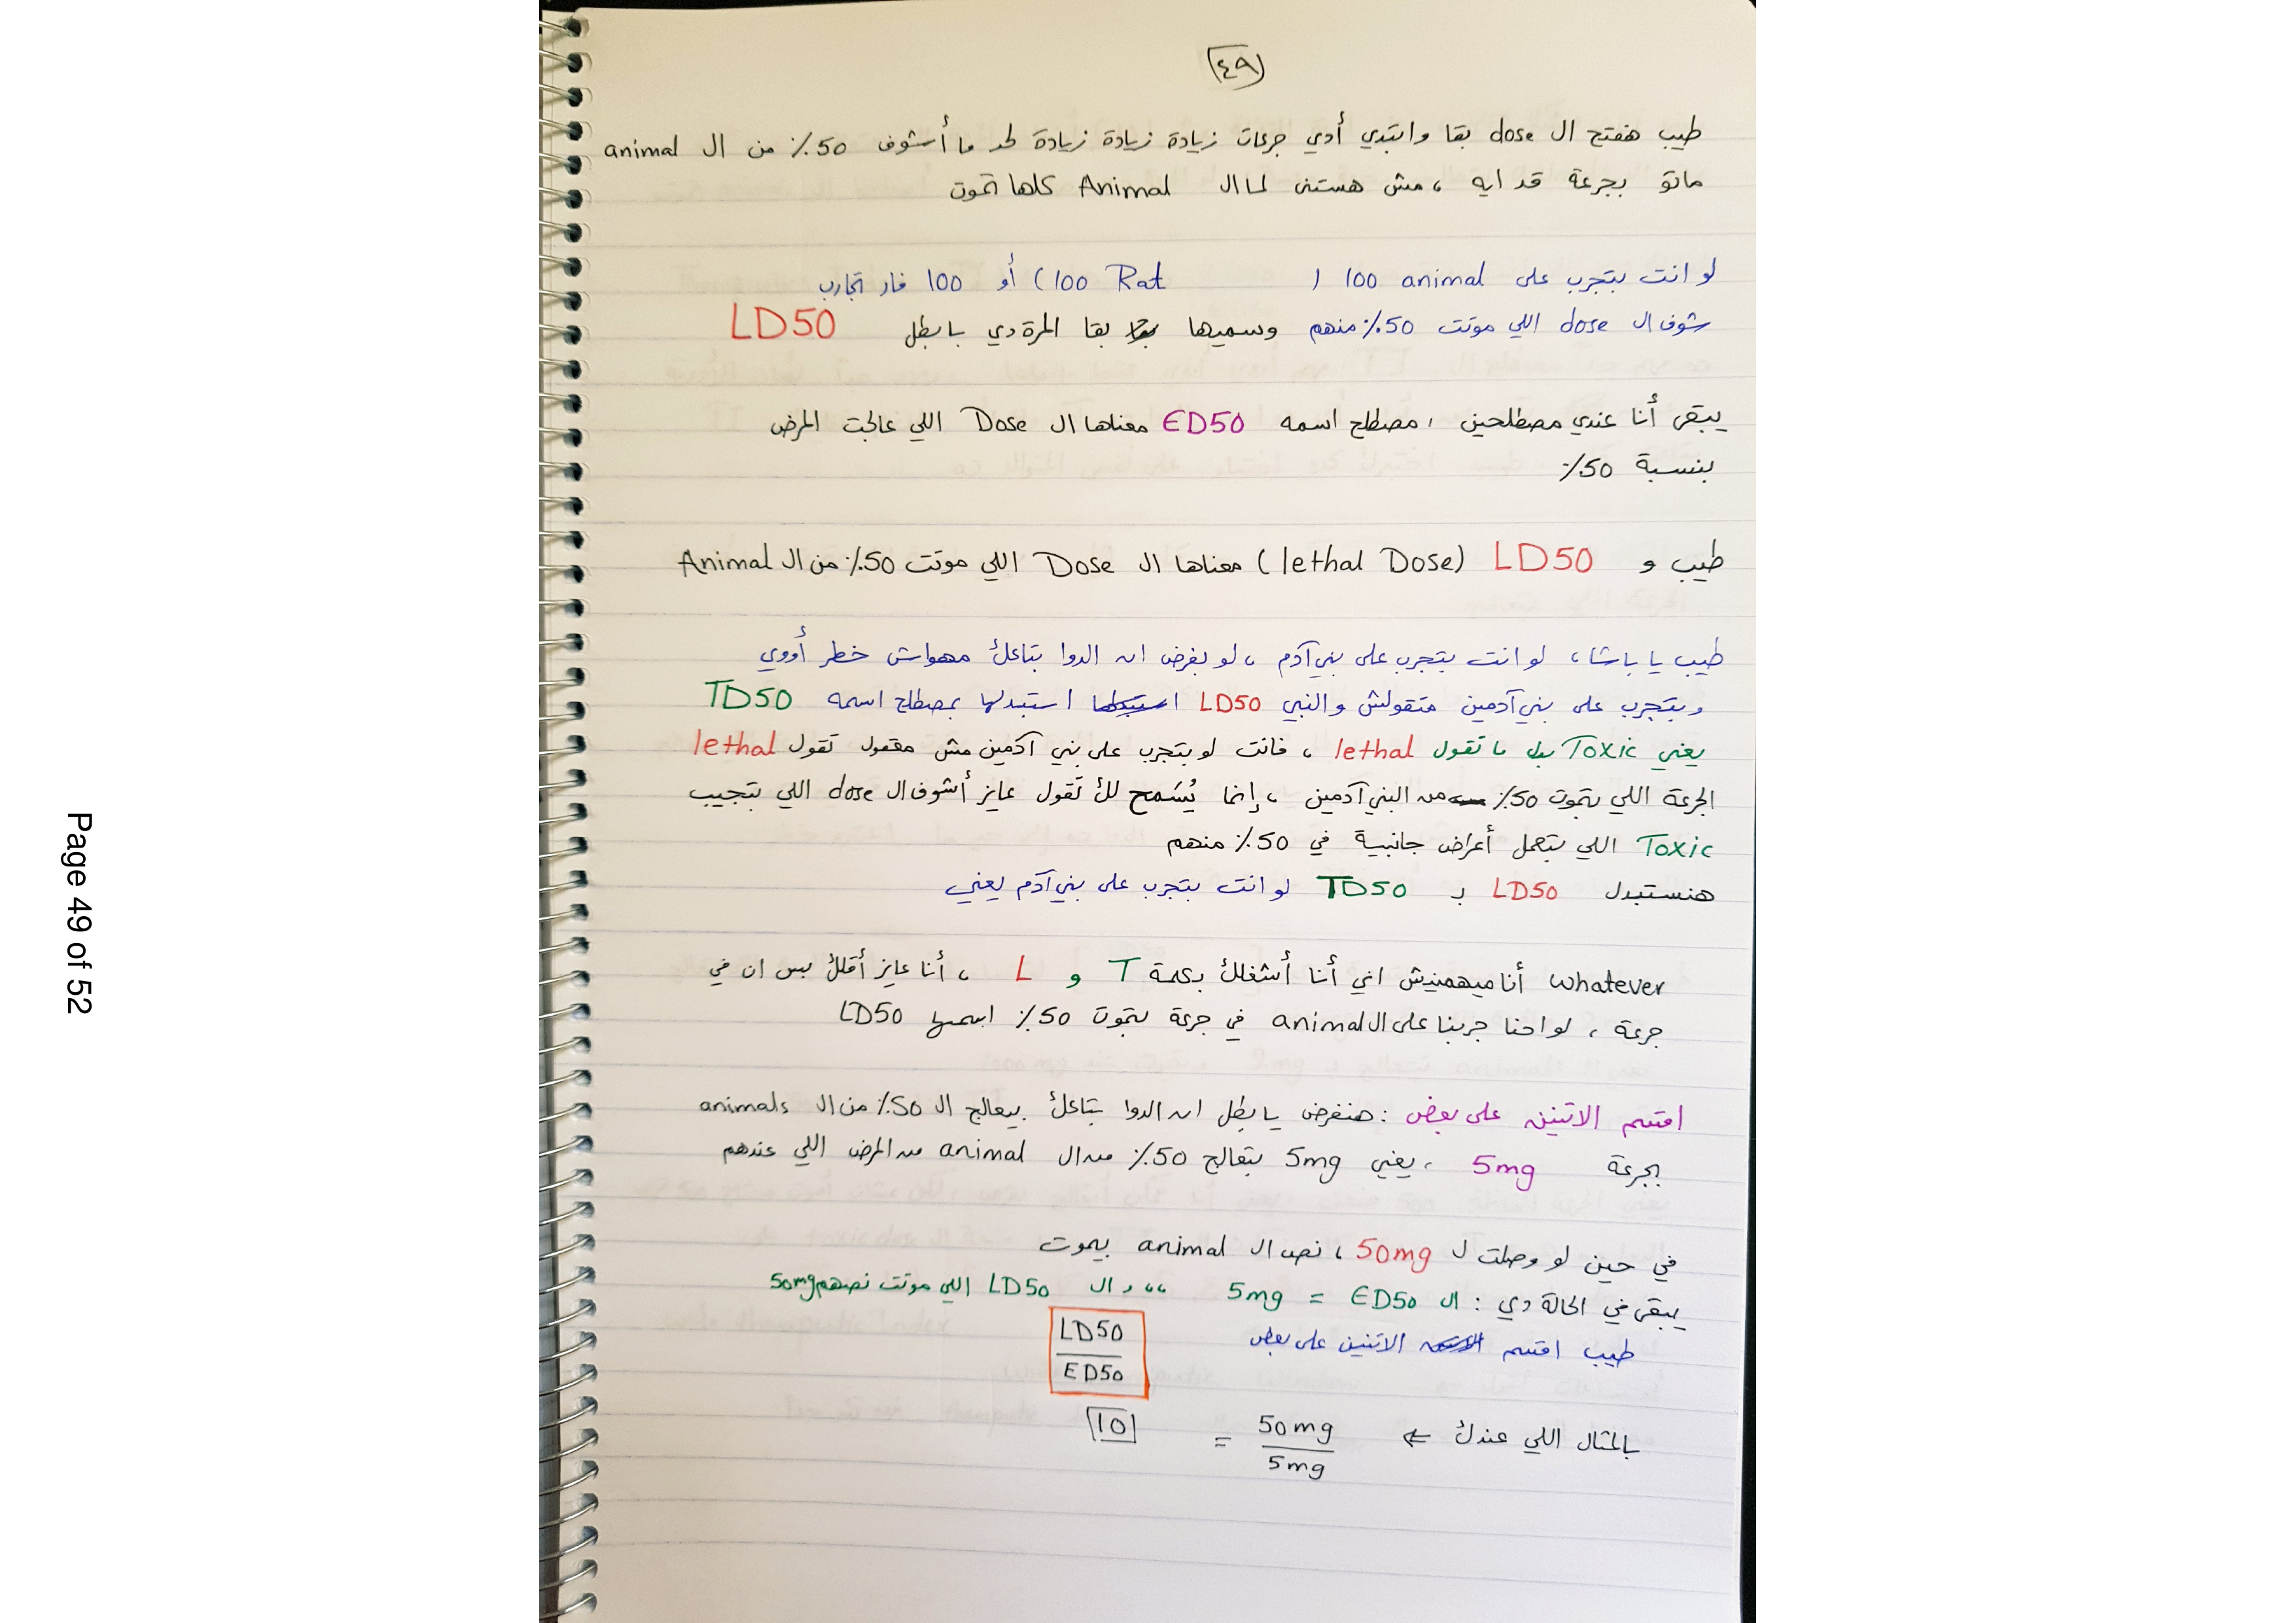 ٤٩
طيب هفتح ال dose بقا وابتدي أدي جرعات زيادة زيادة زيادة لحد ما أشوف 50٪ من ال animal
ماتو بجرعة قد ايه ، مش هستنى لما ال Animal كلها تموت
لو انت بتجرب على 100 animal ( 100 Rat ) أو 100 فار تجارب
شوف ال dose اللي موتت 50٪ منهم وسميها بقا المرة دي يا بطل LD50
يبقى أنا عندي مصطلحين ، مصطلح اسمه ED50 معناها ال Dose اللي عالجت المرض
بنسبة 50٪
طيب و LD50 (lethal Dose) معناها ال Dose اللي موتت 50٪ من ال Animal
طيب يا باشا ، لو انت بتجرب على بني آدم ، لو بفرض ان الدوا بتاعك مهواش خطر أووي
وبتجرب على بني آدمين متقولش والنبي LD50 استبدلها بمصطلح اسمه TD50
يعني Toxic بدل ما تقول lethal ، فانت لو بتجرب على بني آدمين مش معقول تقول lethal
الجرعة اللي بتموت 50٪ من البني آدمين ، إنما يُسمح لك تقول عايز أشوف ال dose اللي بتجيب
Toxic اللي بتعمل أعراض جانبية في 50٪ منهم
هنستبدل LD50 بـ TD50 لو انت بتجرب على بني آدم يعني
whatever أنا ميهمنيش اني أنا أشغلك بكلمة T و L ، أنا عايز أقلك بس ان في
جرعة ، لو احنا جربنا على ال animal في جرعة بتموت 50٪ اسمها LD50
اقسم الاتنين على بعض : هنفرض يا بطل ان الدوا بتاعك بيعالج ال 50٪ من ال animals
بجرعة 5mg ، يعني 5mg بتعالج 50٪ من ال animal من المرض اللي عندهم
في حين لو وصلت ل 50mg ، نص ال animal بيموت
يبقى في الحالة دي : ال ED50 = 5mg ،،، و ال LD50 اللي موتت نصهم 50mg
طيب اقسم الاتنين على بعض LD50
ED50
بالمثال اللي عندك ⇐ 50mg = 10
5mg
Page 49 of 52